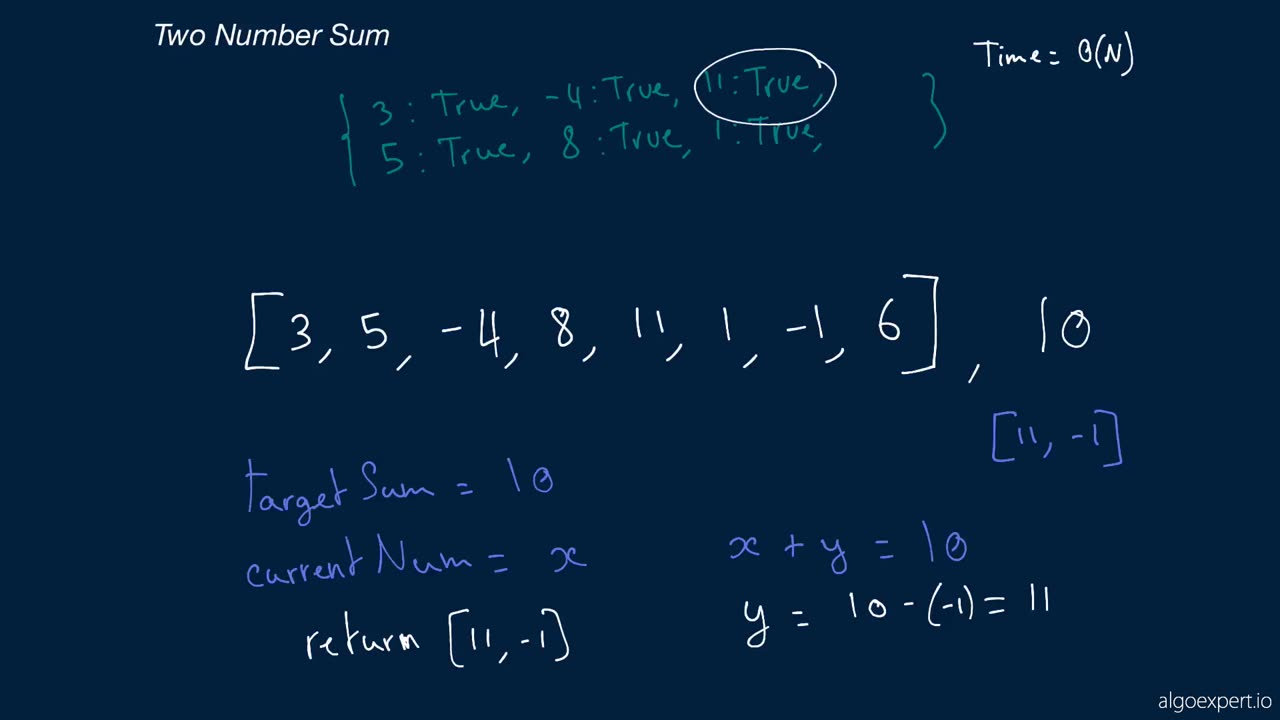 Two Number Sum
Time = O(N)
{ 3 : True, -4 : True, 11 : True,
5 : True, 8 : True, 1 : True, }
[3, 5, -4, 8, 11, 1, -1, 6], 10
[11, -1]
targetSum = 10
currentNum = x
x + y = 10
y = 10 - (-1) = 11
return [11, -1]
algoexpert.io